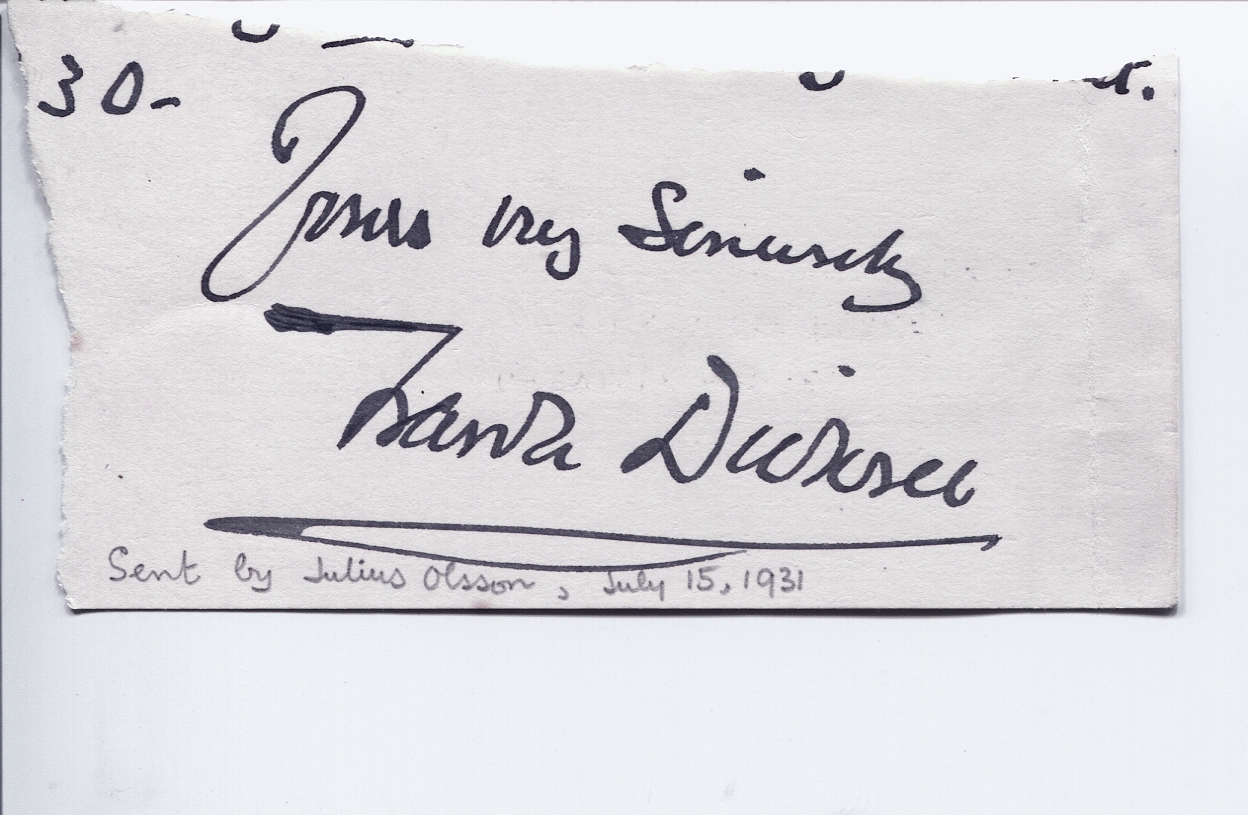 30-
Yours very Sincerely
Frank Dicksee
Sent by Julius Olsson, July 15, 1931